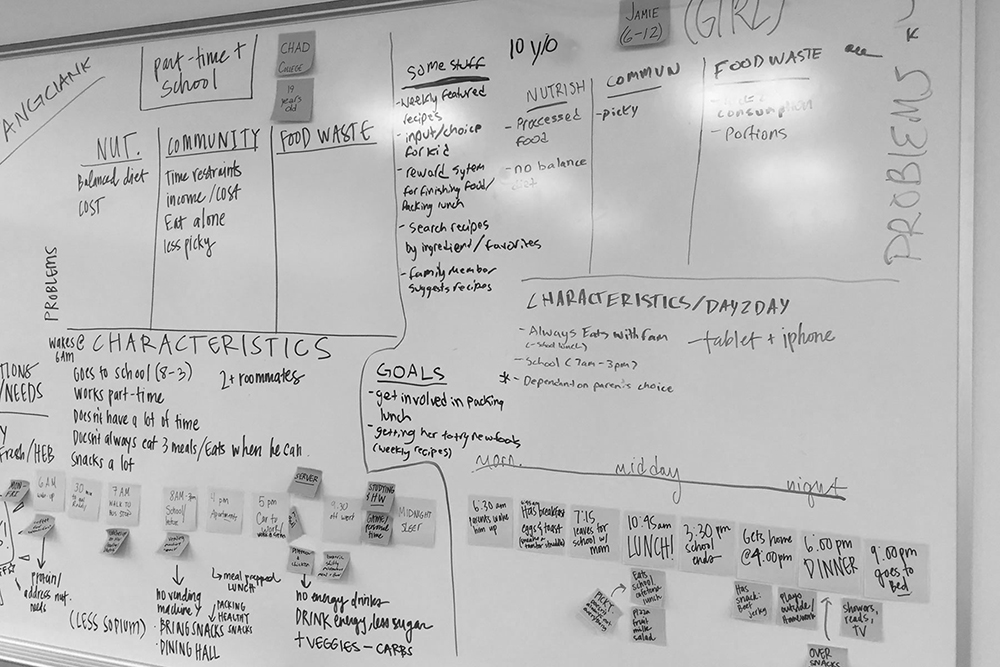 part-time +
school
CHAD
COLLEGE
19
years
old
NUT.
Balanced diet
COST
COMMUNITY
Time restraints
income/COST
Eat alone
less picky
FOOD WASTE
PROBLEMS
SOME STUFF
- Weekly featured
recipes
- input/choice
for kid
- reward sytem
for finishing food/
Packing lunch
- search recipes
by ingredient/favorites
- family member
suggests recipes
10 y/o
JAMIE
(6-12)
(GIRL)
NUTRISH
- Processed
food
- no balance
diet
COMMUN
- picky
FOOD WASTE
consumption
- Portions
PROBLEMS
wakes @
6AM
CHARACTERISTICS
Goes to school (8-3)
2+ roommates
Works part-time
Doesn't have a lot of time
Doesn't always eat 3 meals/Eats when he can.
Snacks a lot
/NEEDS
Fresh/HEB
GOALS
- get involved in packing
lunch
- getting her to try new foods
(weekly recipes)
CHARACTERISTICS/DAY2DAY
- Always Eats with fam
- School (7am-3pm)
* - Dependent on parent's choice
- tablet + iphone
morn.
midday
night
6AM
wake-up
7 AM
WALK TO
BUS STOP
8AM-3pm
School/
4 pm
Apartment
5 pm
Car to
Work
SERVER
9:30
STUDYING
& HW
GAME/personal
time
MIDNIGHT
SLEEP
protein/
address nut.
needs
(LESS SODIUM)
no vending
machine
- BRING SNACKS
- DINING HALL
meal prepped
LUNCH
PACKING
HEALTHY
SNACKS
no energy drinks
DRINK energy, less sugar
+ VEGGIES - CARBS
6:30 am
parents wake
him up
Has breakfast
eggs & toast
7:15
leaves for
school w/
mom
10:45am
LUNCH!
3:30 pm
school
ends
Gets home
@4:00pm
6:00 pm
DINNER
9:00pm
goes to
Bed
PICKY
Eats
school
cafeteria
lunch
Pizza
fruit
milk
salad
Has
snack:
Beef
jerky
Plays
outside/
homework
showers,
reads,
TV
OVER
SNACKS